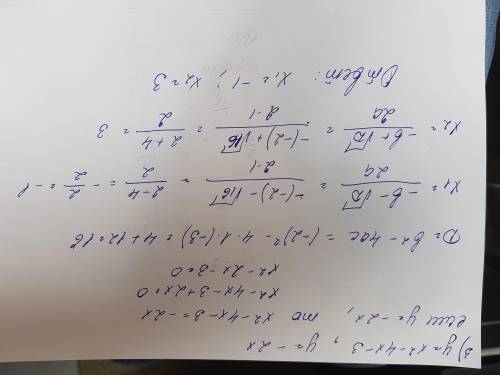 3) y = x² - 4x - 3, y = -2x
если y = -2x, то x² - 4x - 3 = -2x
x² - 4x - 3 + 2x = 0
x² - 2x - 3 = 0
D = b² - 4ac = (-2)² - 4·1·(-3) = 4 + 12 = 16
x₁ = (-b - √D)/2a = (-(-2) - √16)/2·1 = (2-4)/2 = -2/2 = -1
x₂ = (-b + √D)/2a = (-(-2) + √16)/2·1 = (2+4)/2 = 3
Ответ: x₁ = -1; x₂ = 3